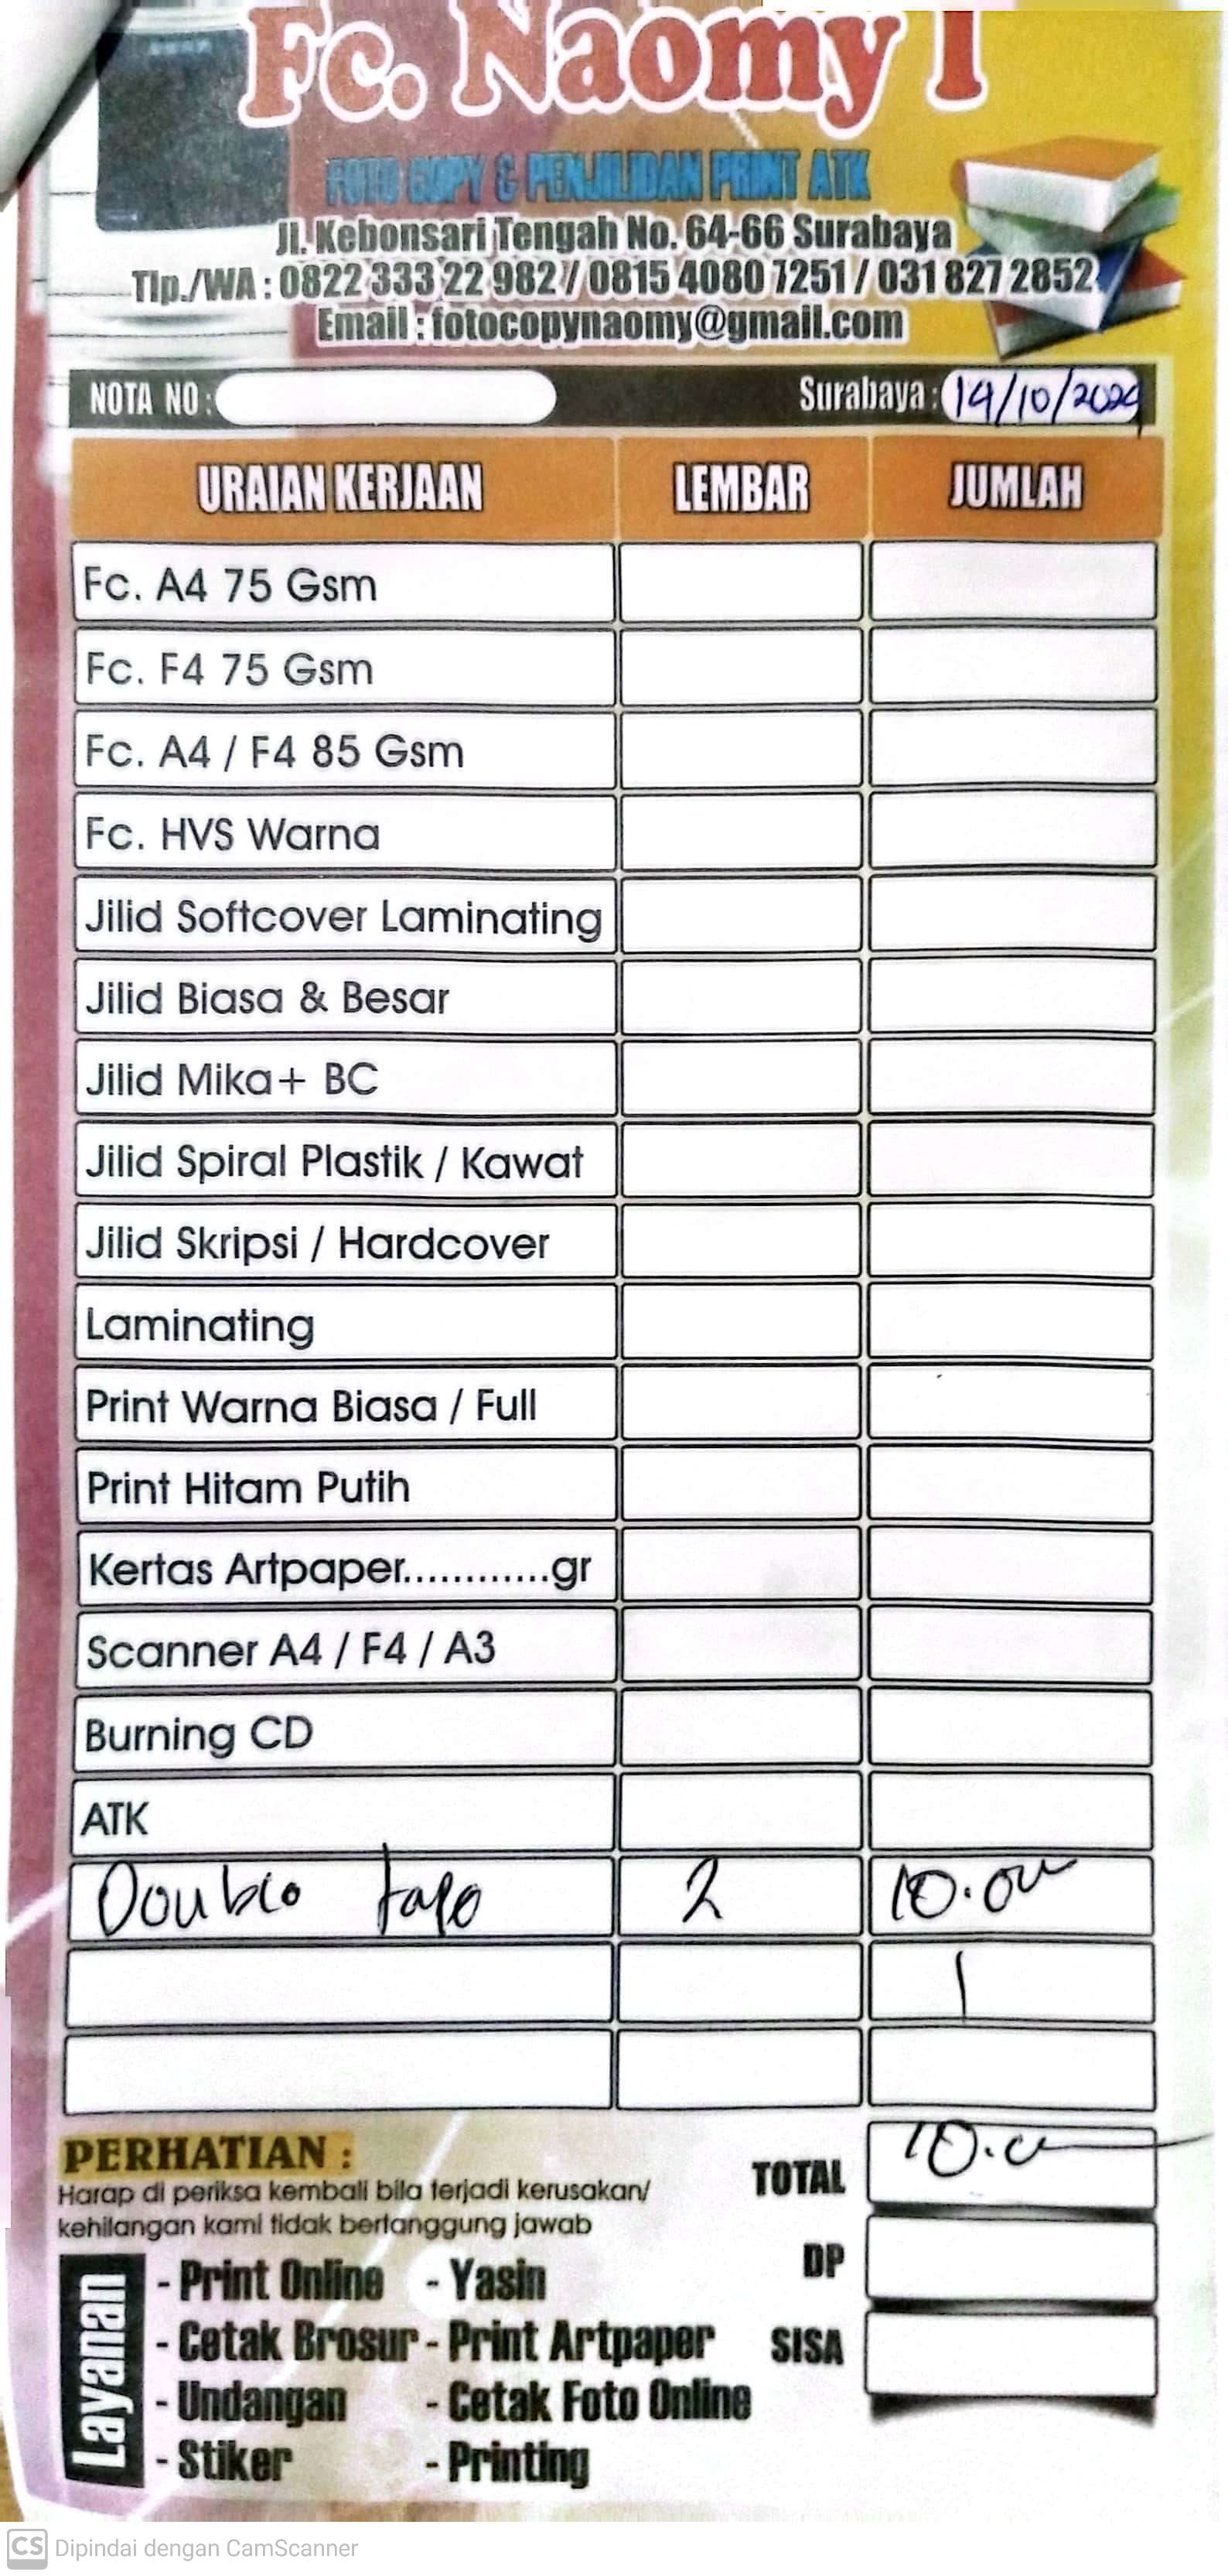 Fc. Naomy 1
FOTO COPY & PENJILIDAN PRINT ATK
Jl. Kebonsari Tengah No. 64-66 Surabaya
Tlp./WA : 0822 333 22 982 / 0815 4080 7251 / 031 827 2852
Email : fotocopynaomy@gmail.com
NOTA NO : Surabaya : 14/10/2024
URAIAN KERJAAN LEMBAR JUMLAH
Fc. A4 75 Gsm
Fc. F4 75 Gsm
Fc. A4 / F4 85 Gsm
Fc. HVS Warna
Jilid Softcover Laminating
Jilid Biasa & Besar
Jilid Mika+ BC
Jilid Spiral Plastik / Kawat
Jilid Skripsi / Hardcover
Laminating
Print Warna Biasa / Full
Print Hitam Putih
Kertas Artpaper............gr
Scanner A4 / F4 / A3
Burning CD
ATK
Double tape 2 10.000
PERHATIAN :
Harap di periksa kembali bila terjadi kerusakan/
kehilangan kami tidak bertanggung jawab
TOTAL 10.000
DP
SISA
Layanan
- Print Online - Yasin
- Cetak Brosur - Print Artpaper
- Undangan - Cetak Foto Online
- Stiker - Printing
CS Dipindai dengan CamScanner